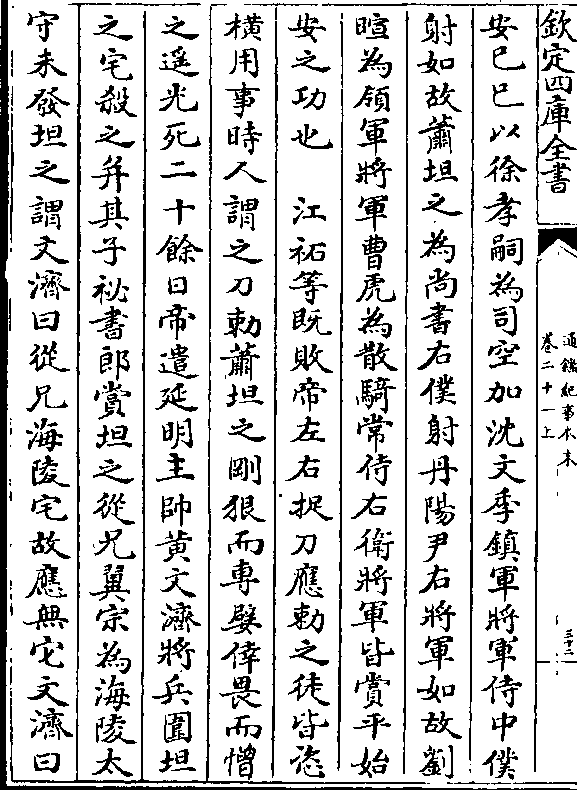 欽定四庫全書
通鑑紀事本末
卷二十一上
三十二
安己巳以徐孝嗣為司空加沈文季鎮軍將軍侍中僕
射如故蕭坦之為尚書右僕射丹陽尹右將軍如故劉
暄為領軍將軍曹虎為散騎常侍右衛將軍皆賞平始
安之功也　江祏等既敗帝左右捉刀應勅之徒皆恣
橫用事時人謂之刀勅蕭坦之剛狠而專嬖倖畏而憎
之遥光死二十餘日帝遣延明主帥黄文濟將兵圍坦
之宅殺之并其子祕書郎賞坦之從兄翼宗為海陵太
守未發坦之謂文濟曰從兄海陵宅故應無它文濟曰